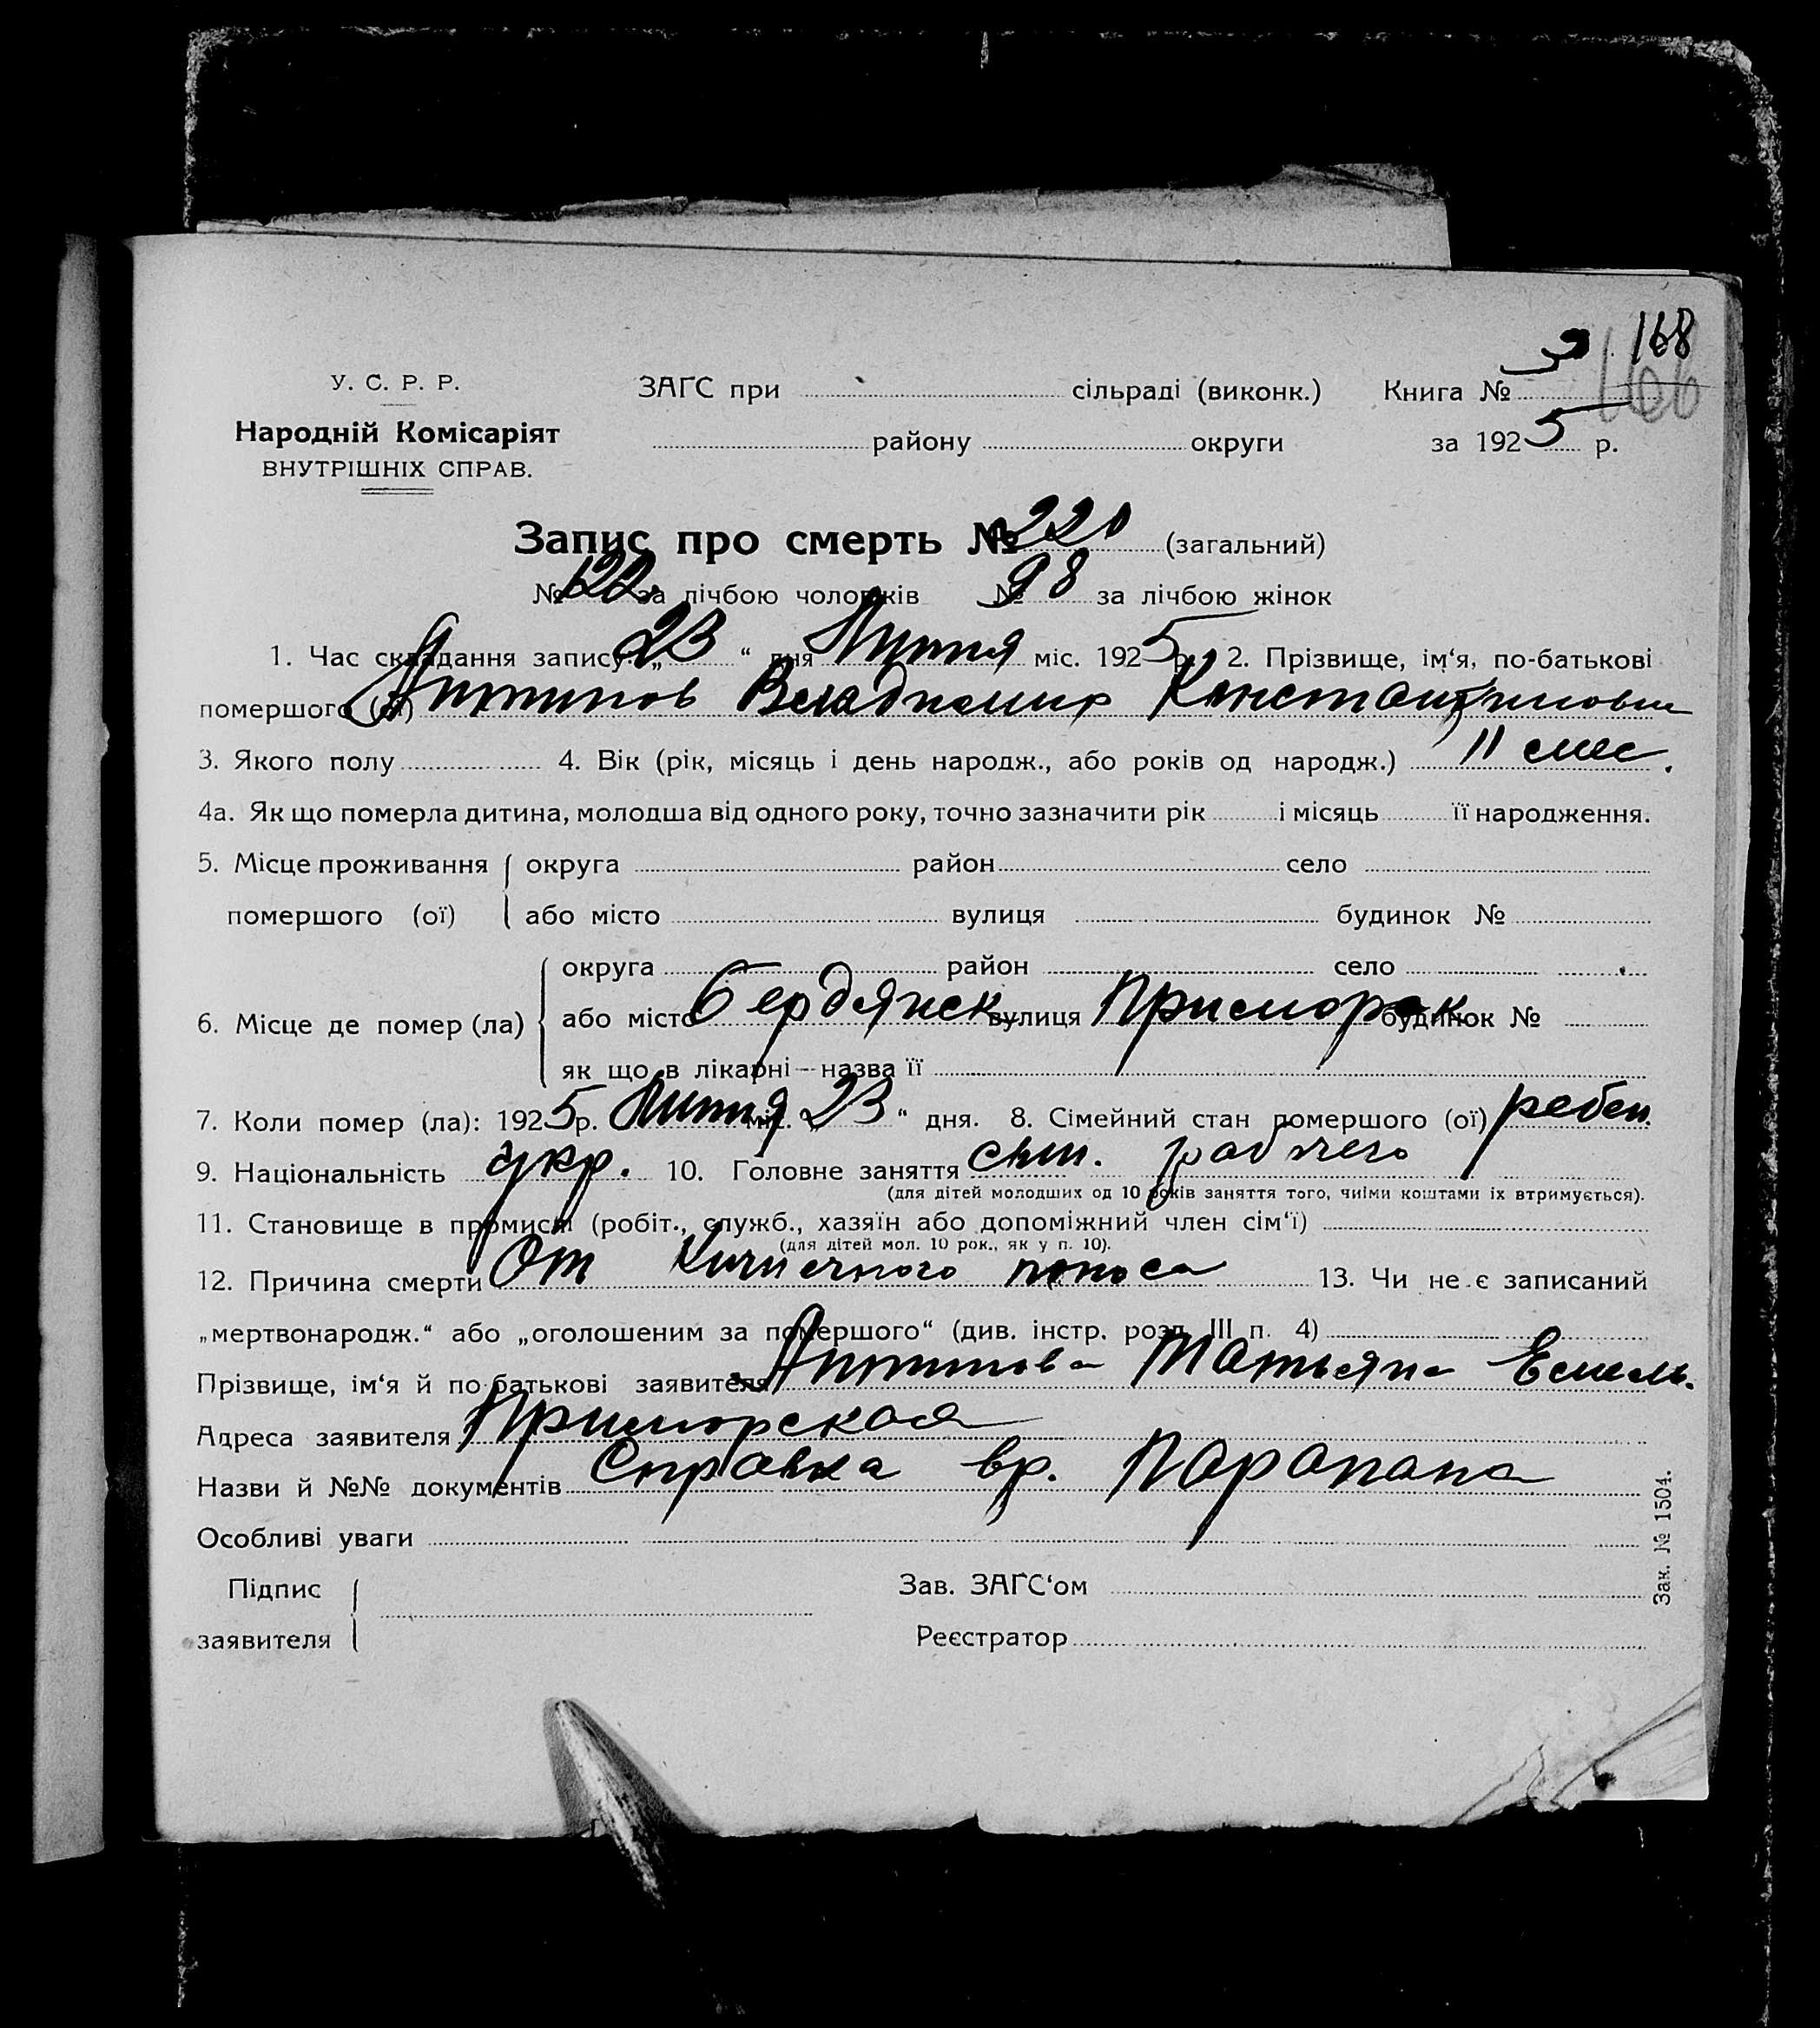 168
166
У. С. Р. Р.
ЗАГС при сільраді (виконк.) Книга № 3
Народній Комісаріят
району округи за 1925 р.
ВНУТРІШНІХ СПРАВ.
Запис про смерть № 220 (загальний)
№ 122 за лічбою чоловіків № 98 за лічбою жінок
1. Час складання запису „23“ дня Липня міс. 1925 р. 2. Прізвище, ім‘я, по-батькові
помершого (ої) Антипов Владимир Константинович
3. Якого полу 4. Вік (рік, місяць і день народж., або років од народж.) 11 мес.
4а. Як що померла дитина, молодша від одного року, точно зазначити рік і місяць її народження.
5. Місце проживання округа район село
помершого (ої) або місто вулиця будинок №
округа район село
6. Місце де помер (ла) або місто Бердянск вулиця Приморск. будинок №
як що в лікарні — назва її
7. Коли помер (ла): 1925 р. Липня міс. „23“ дня. 8. Сімейний стан помершого (ої) ребен.
9. Національність укр. 10. Головне заняття сын. рабочего
(для дітей молодших од 10 років заняття того, чиїми коштами їх втримується).
11. Становище в промислі (робіт., служб., хазяїн або допоміжний член сім‘ї)
(для дітей мол. 10 рок., як у п. 10).
12. Причина смерти От поноса 13. Чи не є записаний
„мертвонародж.“ або „оголошеним за помершого“ (див. інстр. розд. III п. 4)
Прізвище, ім‘я й по-батькові заявителя Антипова Татьяна Емель.
Адреса заявителя Приморская
Назви й №№ документів Справка вр. Парапана
Особливі уваги
Підпис Зав. ЗАГС‘ом
заявителя Реєстратор
Зак. № 1504.